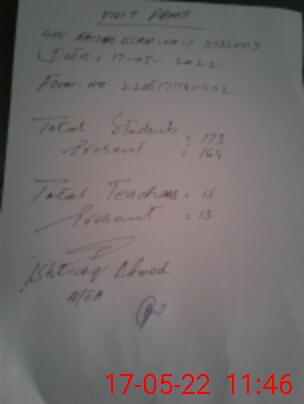 VISIT PROOF
Date: 17-05-2022
Form-no.
Total Students = 173
Present = 164
Total Teachers = 15
Present = 13
Ishtiaq Ahmed
MEA
17-05-22 11:46